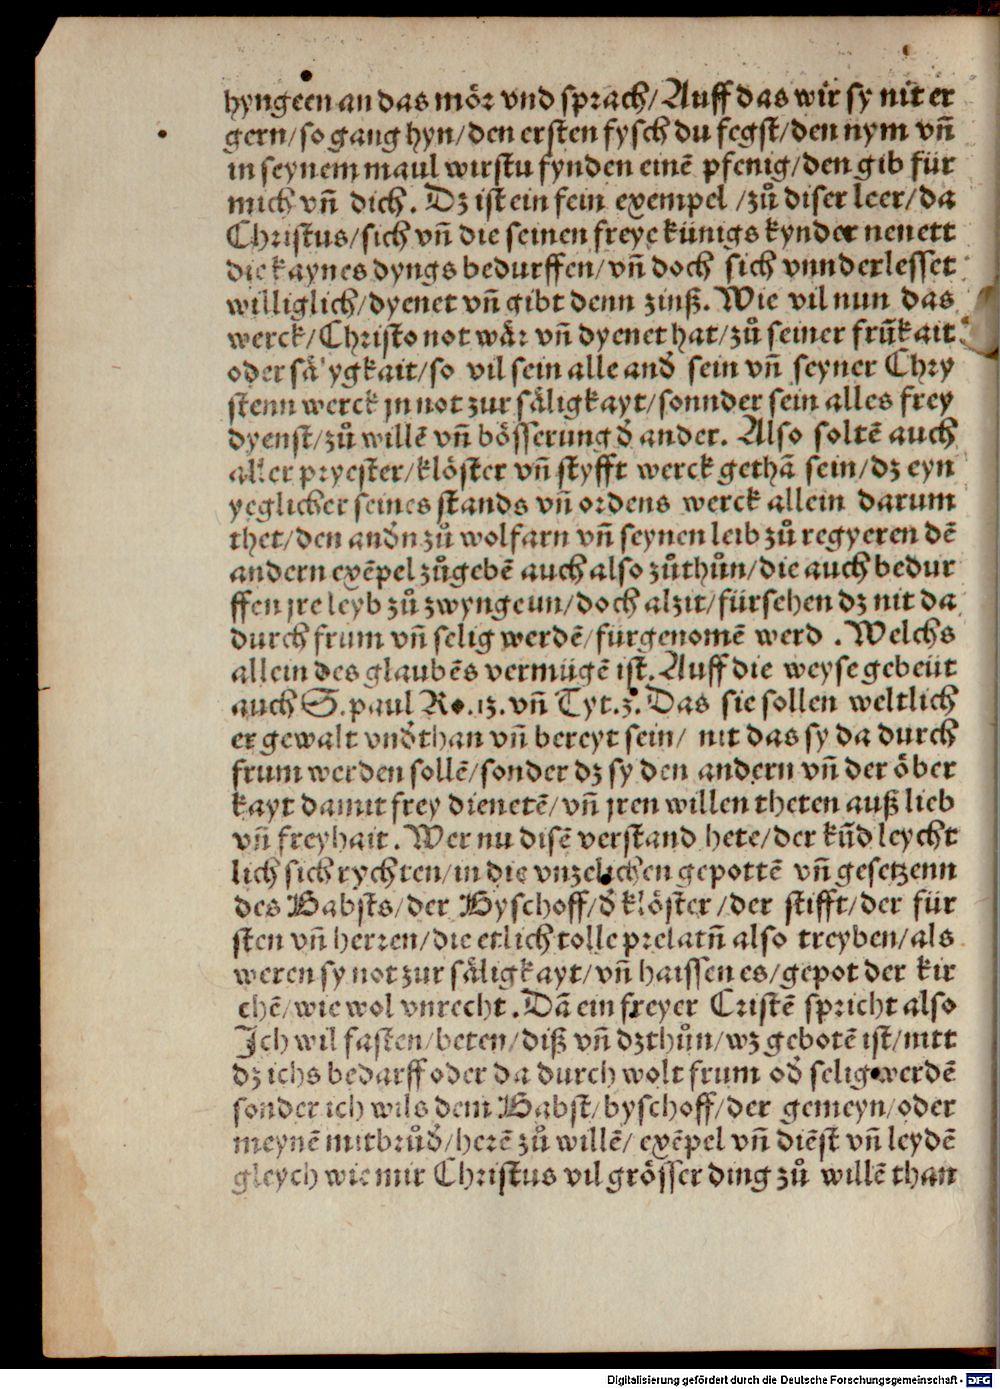 hyngeen an das mör vnd sprach/ Auff das wir sy nit er
gern/ so gang hyn/ den ersten fysch du fegst/ den nym vñ
in seynem maul wirstu fynden einē pfenig/ den gib für
mich vñ dich. Dz ist ein fein exempel /zů diser leer/ da
Christus/ sich vñ die seinen freye künigs kynder nenett
die kaynes dyngs bedurffen/ vñ doch sich vnnderlesset
williglich/ dyenet vñ gibt denn zinß. Wie vil nun das
werck/ Christo not wär vñ dyenet hat/ zů seiner frũkait
oder sä ygkait/ so vil sein alle and̕ sein vñ seyner Chry
stenn werck jn not zur säligkayt/ sonnder sein alles frey
dyenst/ zů willē vñ bösserung d̕ ander. Also soltē auch
aller pryester/ klöster vñ styfft werck gethā sein/ dz eyn
yeglicher seines stands vñ ordens werck allein darum
thet/ den and̕n zů wolfarn vñ seynen leib zů regyeren dē
andern exēpel zůgebē auch also zůthůn/ die auch bedur
ffen jre leyb zů zwyngeun/ doch alzit/ fürsehen dz nit da
durch frum vñ selig werdē/ fürgenomē werd . Welchs
allein des glaubēs vermügē ist. Auff die weyse gebeüt
auch S. paul Ro .13. vñ Tyt. 3. Das sie sollen weltlich
er gewalt vnd̕than vñ bereyt sein/ nit das sy da durch
frum werden sollē/ sonder dz sy den andern vñ der öber
kayt damit frey dienetē/ vñ jren willen theten auß lieb
vñ freyhait . Wer nu disē verstand hete/ der kũd leycht
lich sich rychten/ in die vnzelichen gepottē vñ gesetzenn
des Babsts/ der Byschoff/ d̕ klöster /der stifft/ der für
sten vñ herren/ die etlich tolle prelatñ also treyben/ als
weren sy not zur säligkayt/ vñ haissen es/ gepot der kir
chē/ wie wol vnrecht . Dā ein freyer Cristē spricht also
Ich wil fasten/ beten/ diß vñ dz thůn/ wz gebotē ist/ nitt
dz ichs bedarff oder da durch wolt frum od̕ selig werdē
sonder ich wils dem Babst/ byschoff/ der gemeyn/ oder
meynē mitbrůd̕/ herē zů willē/ exēpel vñ diēst vñ leydē
gleych wie mir Christus vil grösser ding zů willē than
Digitalisierung gefördert durch die Deutsche Forschungsgemeinschaft - DFG